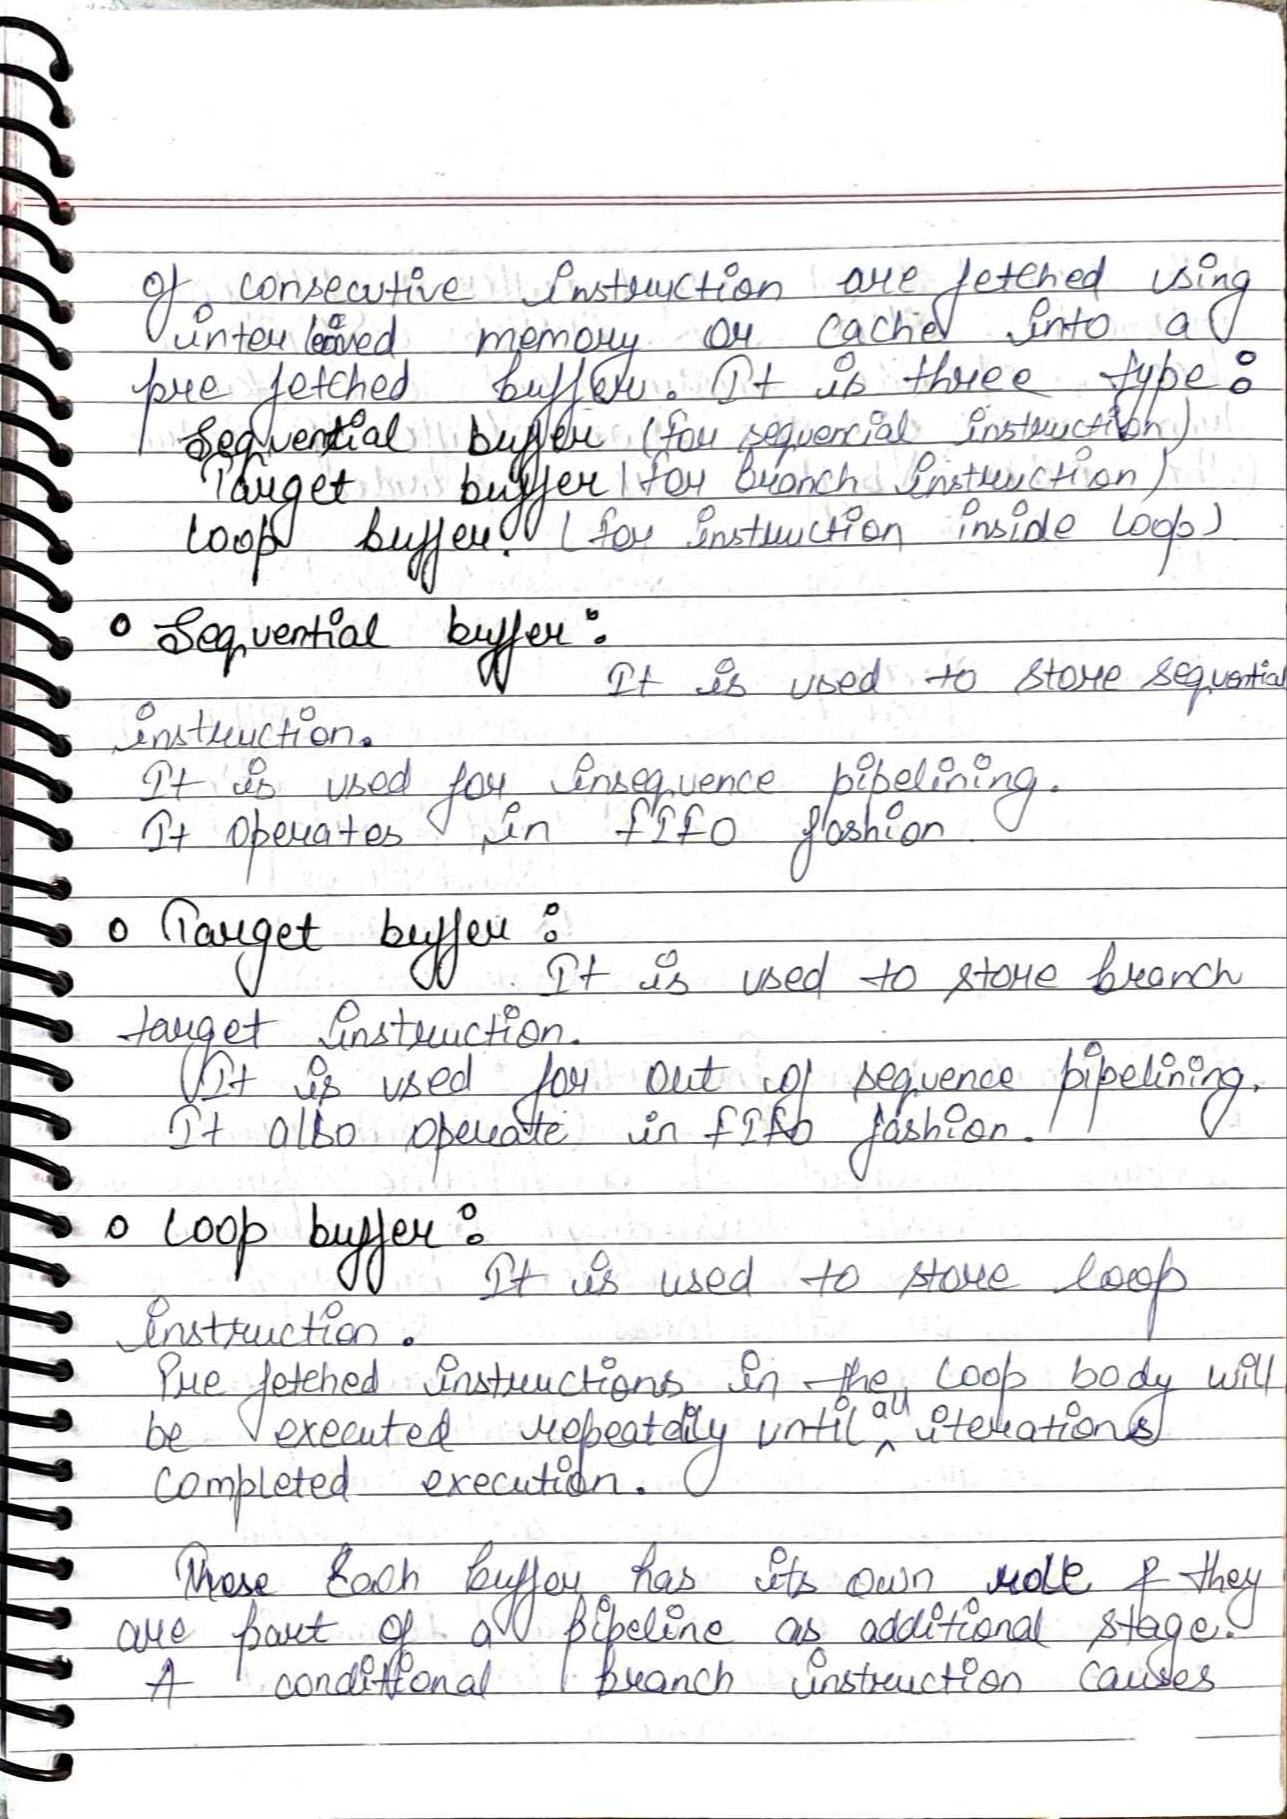 of consecutive instruction are fetched using
interleaved memory or cache into a
pre fetched buffer. It is three type :
Sequential buffer (for sequencial instruction)
Target buffer (for branch instruction)
Loop buffer. (for instruction inside loop)
• Sequential buffer :
It is used to store sequential
instruction.
It is used for insequence pipelining.
It operates in FIFO fashion.
• Target buffer :
It is used to store branch
target instruction.
It is used for out of sequence pipelining.
It also operate in FIFO fashion.
• Loop buffer :
It is used to store loop
instruction.
Pre fetched instructions in the loop body will
be executed repeatdily until all iterations
completed execution.
These Each buffer has its own role & they
are part of a pipeline as additional stage.
A conditional branch instruction causes